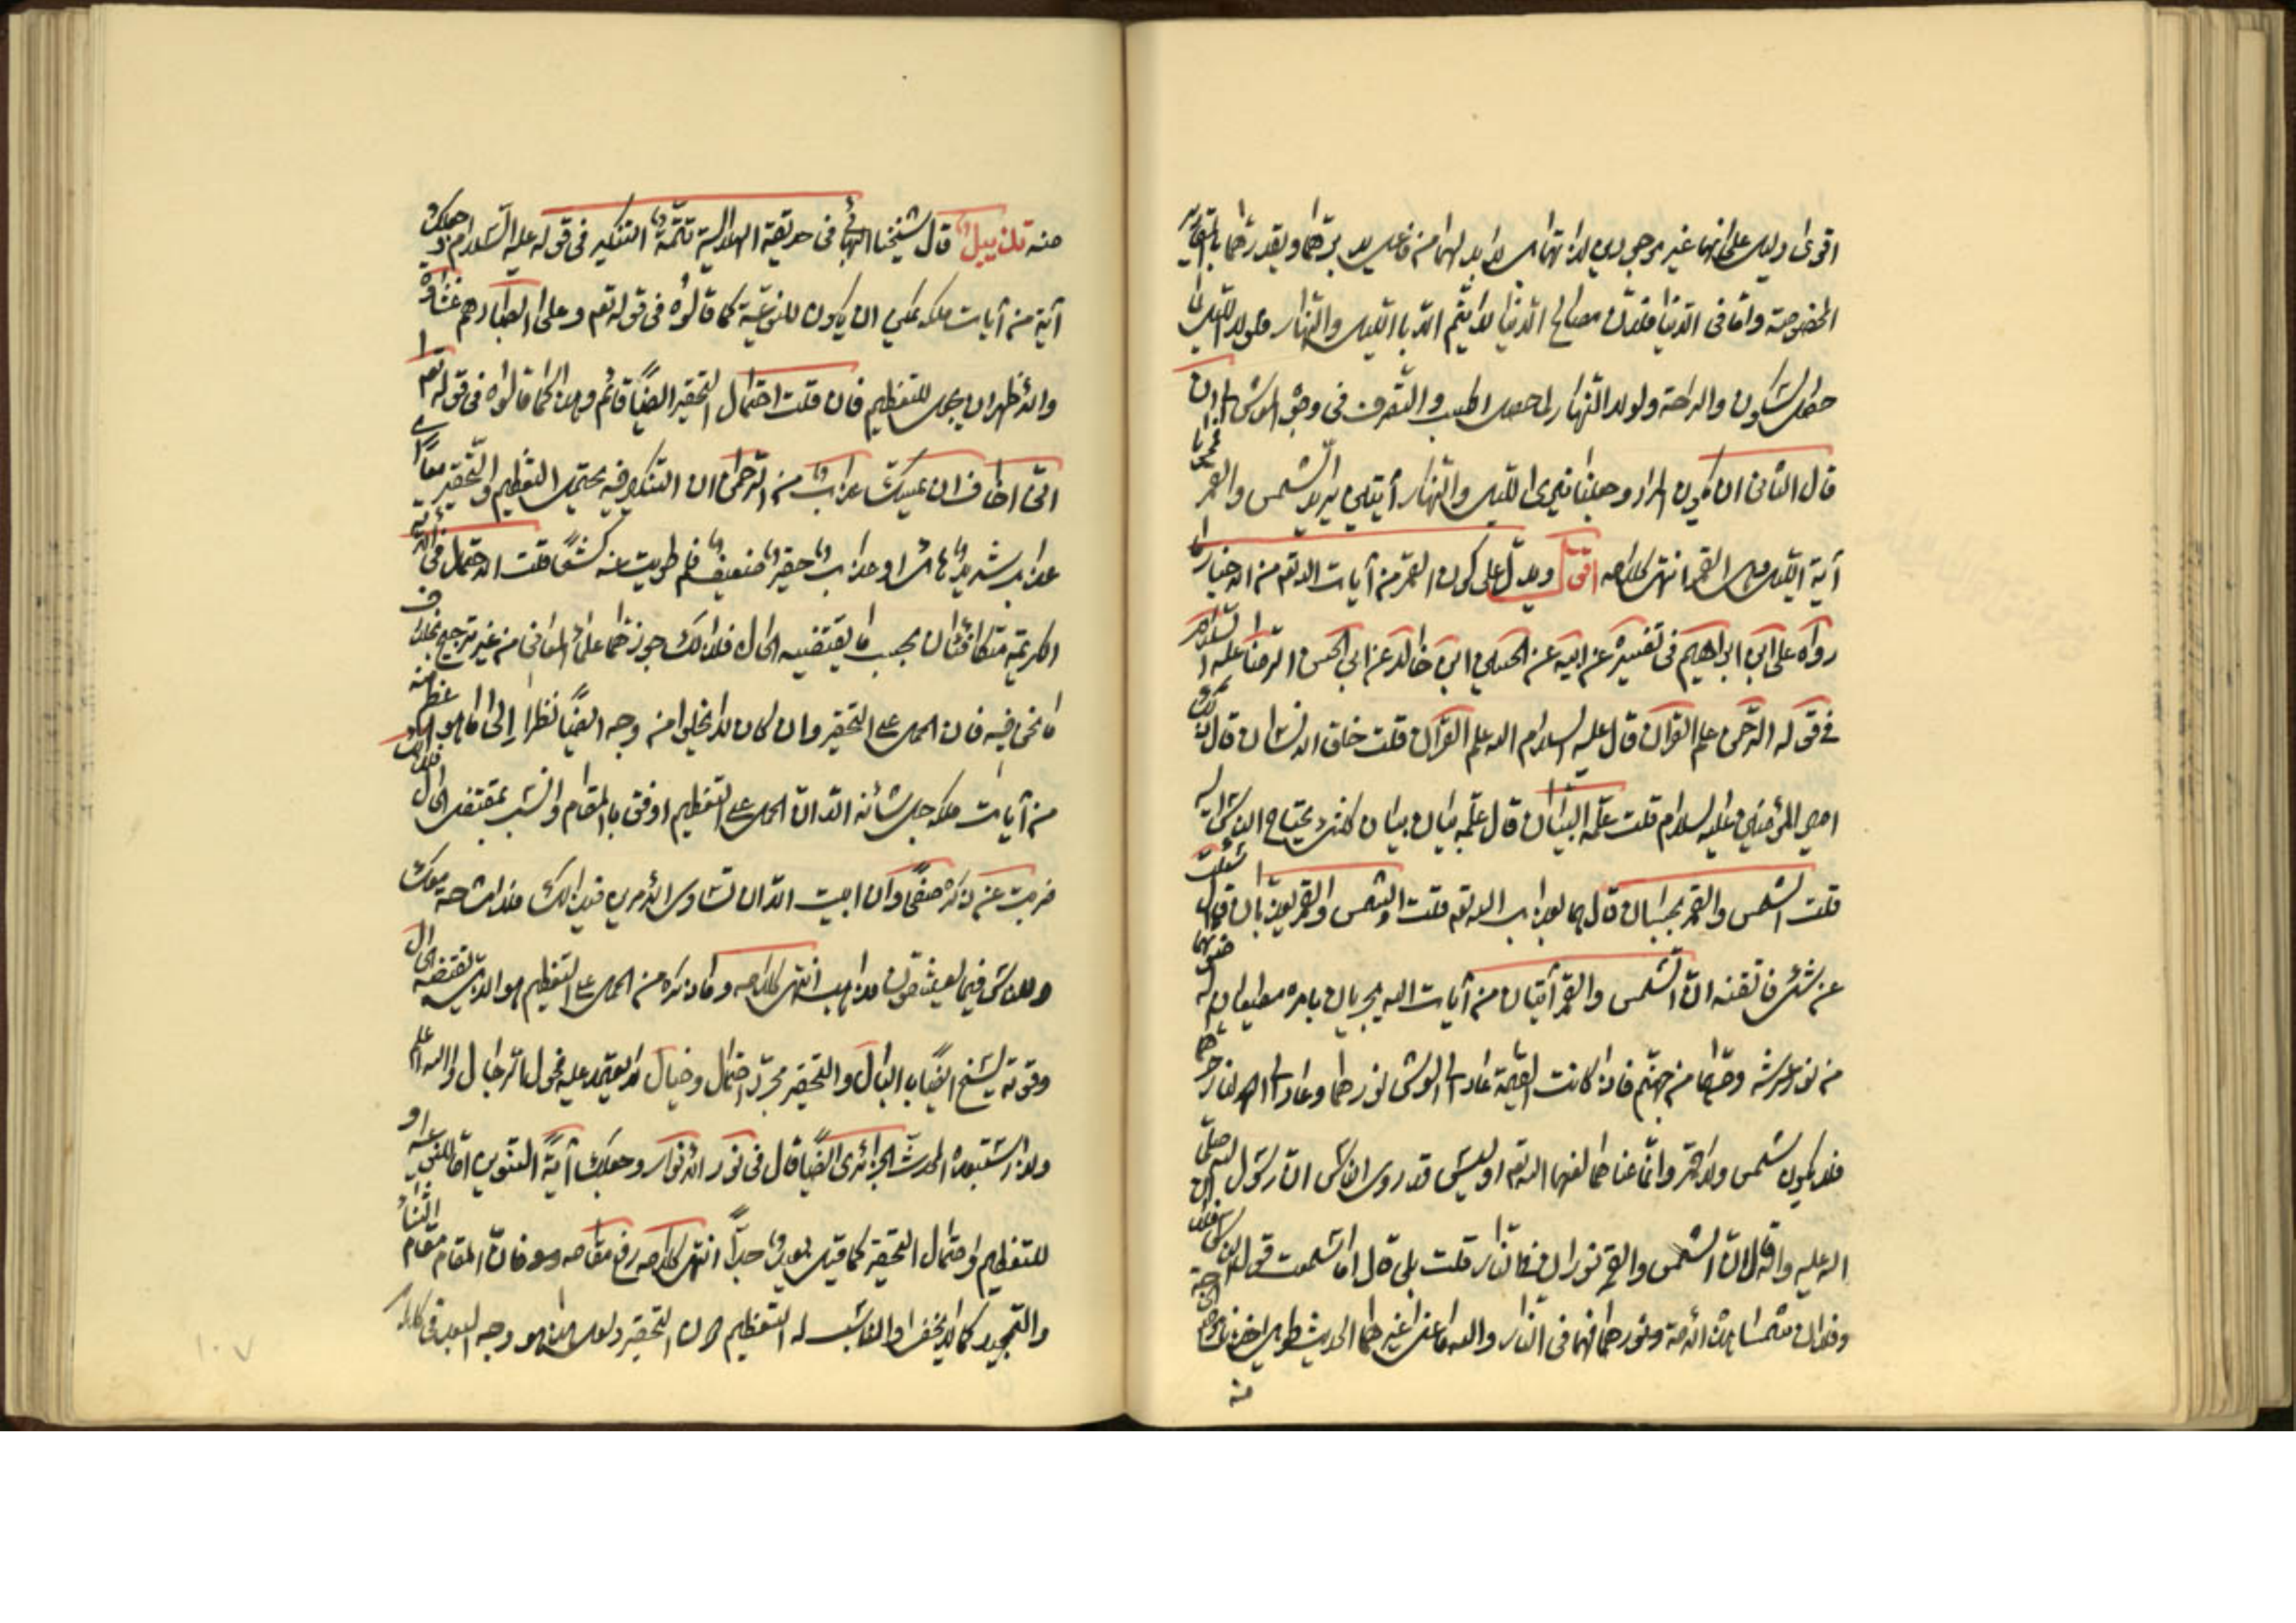 اقوى دليل على انهما غير موجودين لذاتهما بل لا بد لهما من فاعل يدبرهما ويقدرهما بالمقادير
المخصوصة واما في الدنيا فلان مصالح الدنيا لا يتم الا بالليل والنهار فلولا الليل لما
حصل السكون والراحة ولولا النهار لما حصل الكسب والتصرف في وجوه المعاش
قال الثاني ان يكون المراد وجعلنا نيري الليل والنهار آيتين يريد الشمس والقمر
آية الليل هي القمر انتهى كلامه اقول ويدل على كون القمر من آيات الله تعم من الاخبار ما
رواه علي ابن ابراهيم في تفسيره عن ابيه عن الحسين ابن خالد عن ابي الحسن الرضا عليه السلام
في قوله الرحمن علم القرآن قال عليه السلام الله علم القرآن قلت خلق الانسان قال ذلك
امير المؤمنين عليه السلام قلت علمه البيان قال علمه بيان كلشئ يحتاج الناس اليه
قلت الشمس والقمر بحسبان قال هما بعذاب الله تعم قلت الشمس والقمر يعذبان قال سئلت
عن شئ فاتقنه ان الشمس والقمر آيتان من آيات الله يجريان بامره مطيعان له ضوئهما
من نور عرشه وحرهما من جهنم فاذا كانت القيمة عاد الى العرش نورهما وعاد الى النار حرهما
فلا يكون شمس ولا قمر وانما عناهما لعنهما الله تعم اوليس قد روى الناس ان رسول الله صلى
الله عليه وآله قال ان الشمس والقمر نوران في النار قلت بلى قال اما سمعت قول الناس فلان
وفلان شمسا هذه الامة ونورهما فهما في النار والله ما عنى غيرهما الحديث طويل اخذنا موضع الحاجة
منه
منه تذييل قال شيخنا البهائي في حديقة الهلالية تتمة التنكير في قوله عليه السلام وجعلك
آية من آيات ملكه يمكن ان يكون للنوعية كما قالوه في قوله تعم وعلى ابصارهم غشاوة
والاظهر ان يجعل للتعظيم فان قلت احتمال التحقير ايضا قائم وهذا كما قالوه في قوله تعم
اني اخاف ان يمسك عذاب من الرحمن ان التنكير فيه يحتمل التعظيم والتحقير معا اي
عذاب شديد هائل او عذاب حقير ضعيف فلم طويت عنه كشحا قلت الاحتمال في الآية
الكريمة متكافئان بحسب ما يقتضيه الحال فلذلك جوزهما علماء المعاني من غير ترجيح بخلاف
ما نحن فيه فان الحمل على التحقير وان كان لا يخلو من وجه ايضا نظرا الى ما هو اعظم منه
من آيات ملكه جل شأنه الا ان الحمل على التعظيم اوفق بالمقام وانسب بمقتضى الحال فلذلك
ضربت عن ذكره صفحا وان ابيت الا ان تساوى الامرين فذلك فلا مشاحة معك
وللناس فيما يعشقون مذاهب انتهى كلامه وما ذكره من الحمل على التعظيم هو الذي يقتضيه الحال
وقوته الشيخ ايضا بالبال والتحقير مجرد احتمال وخيال لا يعتمد عليه فحول الرجال والله اعلم
ولذا استبعده المحدث الجزائري ايضا قال في نور الانوار وجعلك آية التنوين اما للنوعية او
للتعظيم واحتمال التحقير كما قيل بعيد جدا انتهى كلامه رفع مقامه وهو فان المقام مقام الثناء
والتمجيد كما لا يخفى والمناسب له التعظيم دون التحقير ولعل هذا هو وجه البعد في كلامه
١٠٧